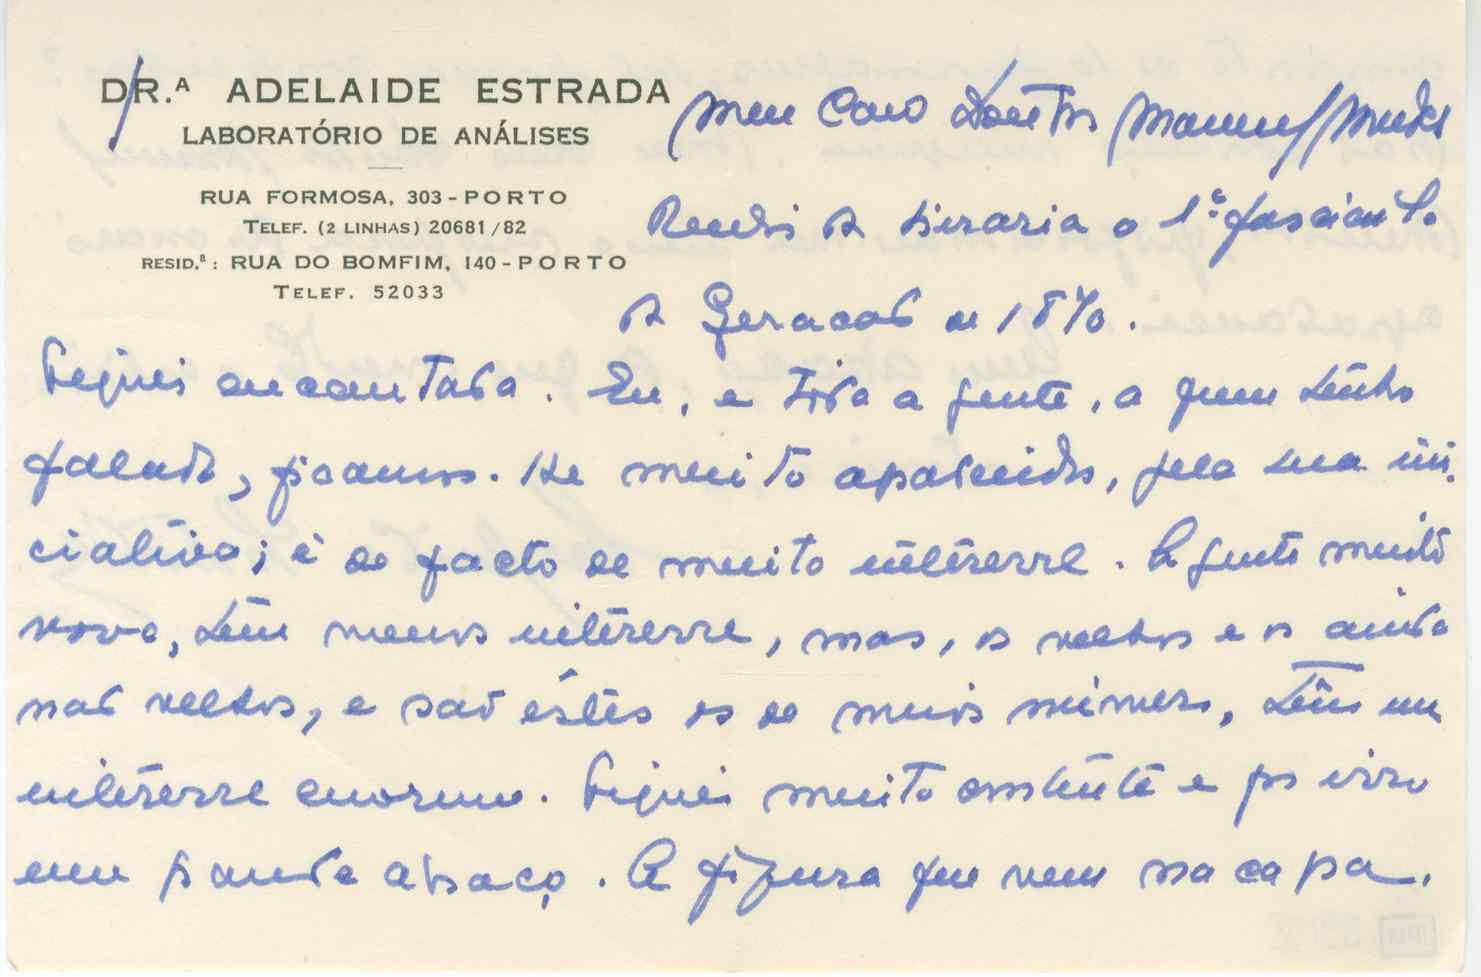 DR.ª ADELAIDE ESTRADA
LABORATÓRIO DE ANÁLISES
RUA FORMOSA, 303 - PORTO
TELEF. (2 LINHAS) 20681/82
RESID.ª: RUA DO BOMFIM, 140 - PORTO
TELEF. 52033
Meu Caro Doutor Manuel Mendes
Recebi da Livraria o 1.º fascículo
da Geração de 1870.
Fiquei encantada. Eu, e toda a gente, a quem tenho
falado, ficamos. Há muito aparecido, pela sua ini-
ciativa; é de facto de muito interesse. A gente muito
nova, têm menos interesse, mas, os velhos e os ainda
não velhos, e são êstes os de maior número, têm um
interêsse enorme. Fiquei muito contente e por isso
um grande abraço. A figura que vem na capa,